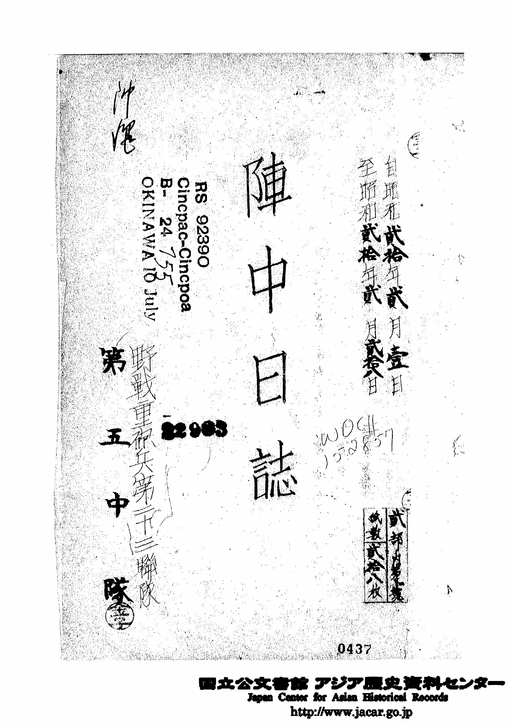 自昭和貳拾年貳月壹日
至昭和貳拾年貳月貳拾八日
貳部ノ内第號
紙数貳拾八枚
WDC
152857
陣中日誌
沖縄
RS 92390
Cincpac-Cincpoa
B- 24755
OKINAWA 10 July
22903
野戦重砲兵第二十三聯隊
第五中隊
0437
国立公文書館 アジア歴史資料センター
Japan Center for Asian Historical Records
http://www.jacar.go.jp